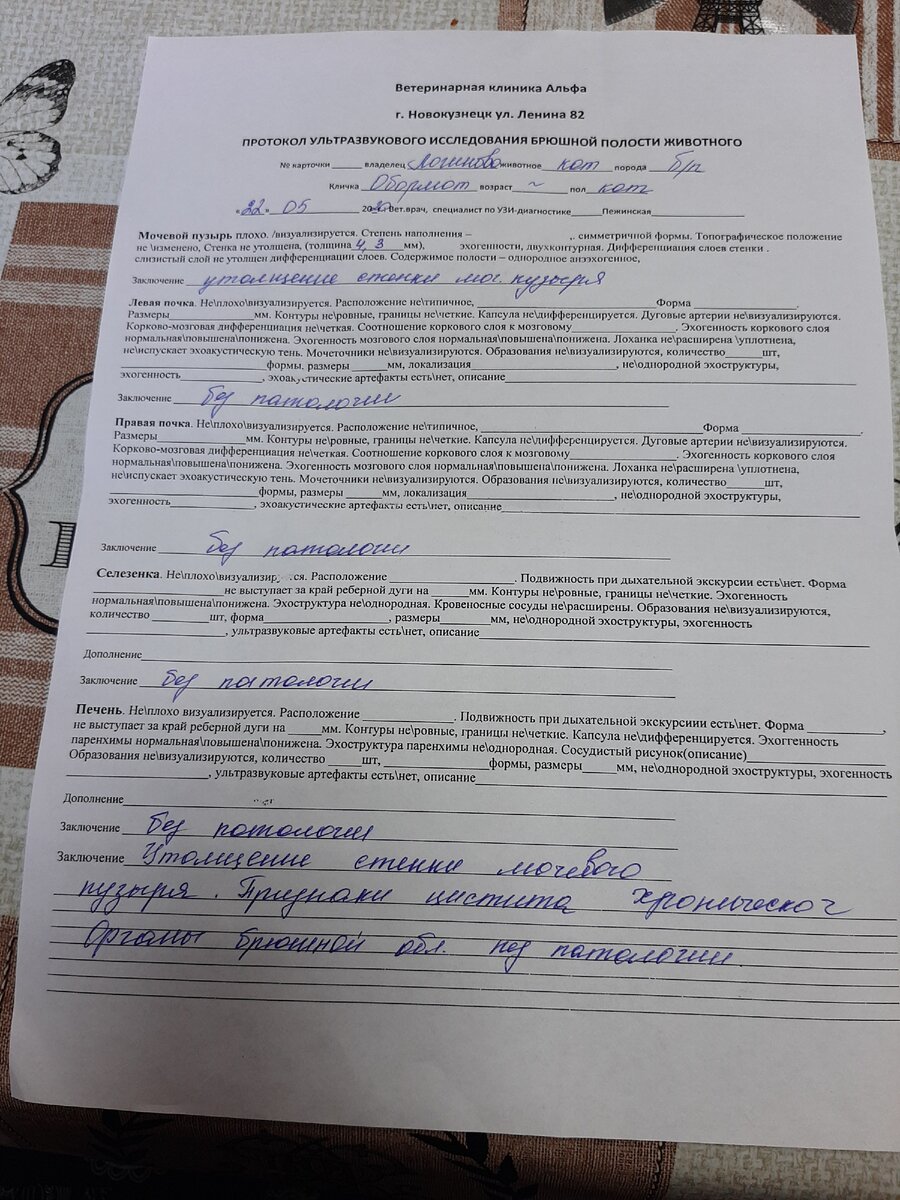 Ветеринарная клиника Альфа
г. Новокузнецк ул. Ленина 82
ПРОТОКОЛ УЛЬТРАЗВУКОВОГО ИССЛЕДОВАНИЯ БРЮШНОЙ ПОЛОСТИ ЖИВОТНОГО
№ карточки _____ владелец Логинова животное кот порода б/п
Кличка Обормот возраст ~ пол кот
«22» 05 2020 Вет.врач, специалист по УЗИ-диагностике_____Пежинская
Мочевой пузырь плохо. /визуализируется. Степень наполнения – , симметричной формы. Топографическое положение
не \изменено, Стенка не утолщена, (толщина 4,3 мм), эхогенности, двухконтурная. Дифференциация слоев стенки .
слизистый слой не утолщен дифференциации слоев. Содержимое полости – однородное анэхогенное,
Заключение утолщение стенки моч. пузыря
Левая почка. Не\плохо\визуализируется. Расположение не\типичное, _____Форма _____.
Размеры_____мм. Контуры не\ровные, границы не\четкие. Капсула не\дифференцируется. Дуговые артерии не\визуализируются.
Корково-мозговая дифференциация не\четкая. Соотношение коркового слоя к мозговому_____. Эхогенность коркового слоя
нормальная\повышена\понижена. Эхогенность мозгового слоя нормальная\повышена\понижена. Лоханка не\расширена \уплотнена,
не\испускает эхоакустическую тень. Мочеточники не\визуализируются. Образования не\визуализируются, количество_____шт,
_____формы, размеры _____мм, локализация_____, не\однородной эхоструктуры,
эхогенность_____, эхоакустические артефакты есть\нет, описание_____
Заключение без патологии
Правая почка. Не\плохо\визуализируется. Расположение не\типичное, _____Форма _____.
Размеры_____мм. Контуры не\ровные, границы не\четкие. Капсула не\дифференцируется. Дуговые артерии не\визуализируются.
Корково-мозговая дифференциация не\четкая. Соотношение коркового слоя к мозговому_____. Эхогенность коркового слоя
нормальная\повышена\понижена. Эхогенность мозгового слоя нормальная\повышена\понижена. Лоханка не\расширена \уплотнена,
не\испускает эхоакустическую тень. Мочеточники не\визуализируются. Образования не\визуализируются, количество_____шт,
_____формы, размеры _____мм, локализация_____, не\однородной эхоструктуры,
эхогенность_____, эхоакустические артефакты есть\нет, описание_____
Заключение без патологии
Селезенка. Не\плохо\визуализир ся. Расположение _____. Подвижность при дыхательной экскурсии есть\нет. Форма
_____не выступает за край реберной дуги на _____мм. Контуры не\ровные, границы не\четкие. Эхогенность
нормальная\повышена\понижена. Эхоструктура не\однородная. Кровеносные сосуды не\расширены. Образования не\визуализируются,
количество _____шт, форма_____, размеры_____мм, не\однородной эхоструктуры, эхогенность
_____, ультразвуковые артефакты есть\нет, описание_____
Дополнение_____
Заключение без патологии
Печень. Не\плохо визуализируется. Расположение _____. Подвижность при дыхательной экскурсиии есть\нет. Форма _____,
не выступает за край реберной дуги на _____мм. Контуры не\ровные, границы не\четкие. Капсула не\дифференцируется. Эхоггенность
паренхимы нормальная\повышена\понижена. Эхоструктура паренхимы не\однородная. Сосудистый рисунок(описание)_____
Образования не\визуализируются, количество _____шт, _____формы, размеры_____мм, не\однородной эхоструктуры, эхогенность
_____, ультразвуковые артефакты есть\нет, описание_____
Дополнение_____
Заключение без патологии
Заключение Утолщение стенки мочевого
пузыря. Признаки цистита хроническог
Органы брюшной обл. без патологии.